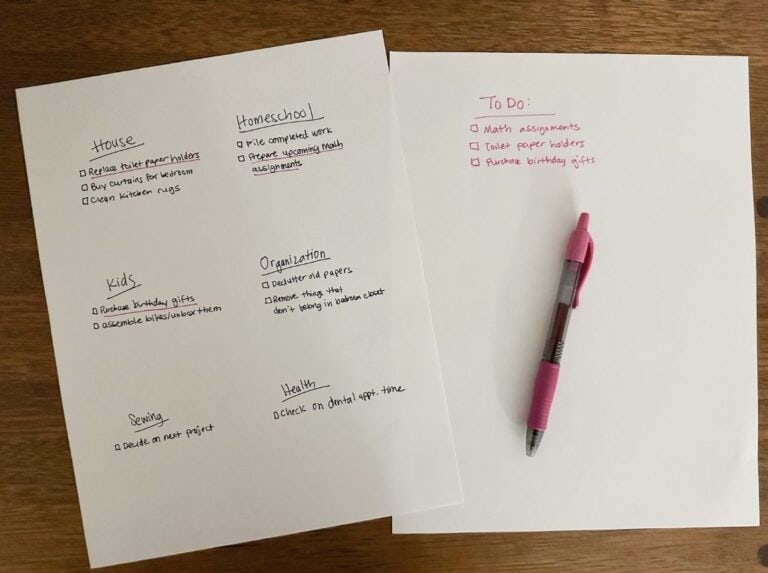 House
Replace toilet paper holders
Buy curtains for bedroom
Clean kitchen rugs
Homeschool
File completed work
Prepare upcoming math
assignments
Kids
Purchase birthday gifts
assemble bikes/unbox them
Organization
Declutter old papers
Remove things that
don't belong in bedroom closet
Sewing
Decide on next project
Health
Check on dental appt. time
To Do:
Math assignments
Toilet paper holders
Purchase birthday gifts